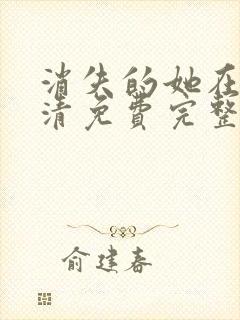 消失的她在
清免費完整
俞建春